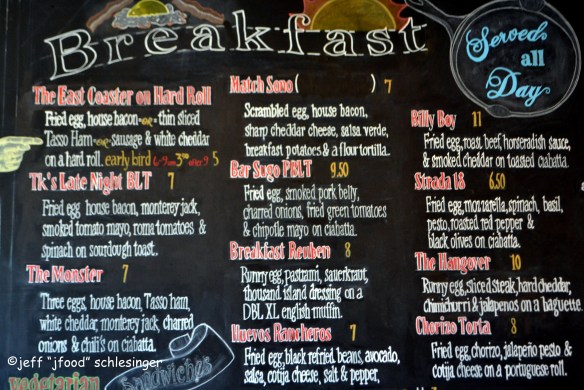 Breakfast
Served
all
Day
The East Coaster on Hard Roll
Fried egg, house bacon -or- thin sliced
Tasso Ham -or- sausage & white cheddar
on a hard roll. early bird 6-9 am 3 after 9 5
Tk's Late Night BLT 7
Fried egg house bacon, monterey jack,
smoked tomato mayo, roma tomatoes &
spinach on sourdough toast.
The Monster 7
Three eggs, house bacon, Tasso ham,
white cheddar, monterey jack, charred
onions & chili's on ciabatta.
vegetarian
Sandwiches
Match Sono ( ) 7
Scrambled egg, house bacon,
sharp cheddar cheese, salsa verde,
breakfast potatoes & a flour tortilla.
Bar Sugo PBLT 9.50
Fried egg, smoked pork belly,
charred onions, fried green tomatoes
& chipotle mayo on ciabatta.
Breakfast Reuben 8
Runny egg, pastrami, sauerkraut,
thousand island dressing on a
DBL XL english muffin.
Huevos Rancheros 7
Fried egg, black refried beans, avocado,
salsa, cotija cheese, salt & pepper.
Billy Boy 11
Fried egg, roast beef, horseradish sauce,
& smoked cheddar on toasted ciabatta.
Strada 18 6.50
Fried egg, mozzarella, spinach, basil,
pesto, roasted red pepper &
black olives on ciabatta.
The Hangover 10
Runny egg, sliced steak, hard cheddar,
chimichurri & jalapenos on a baguette.
Chorizo Torta 8
Fried egg, chorizo, jalapeño pesto &
cotija cheese on a portuguese roll.
©jeff "jfood" schlesinger